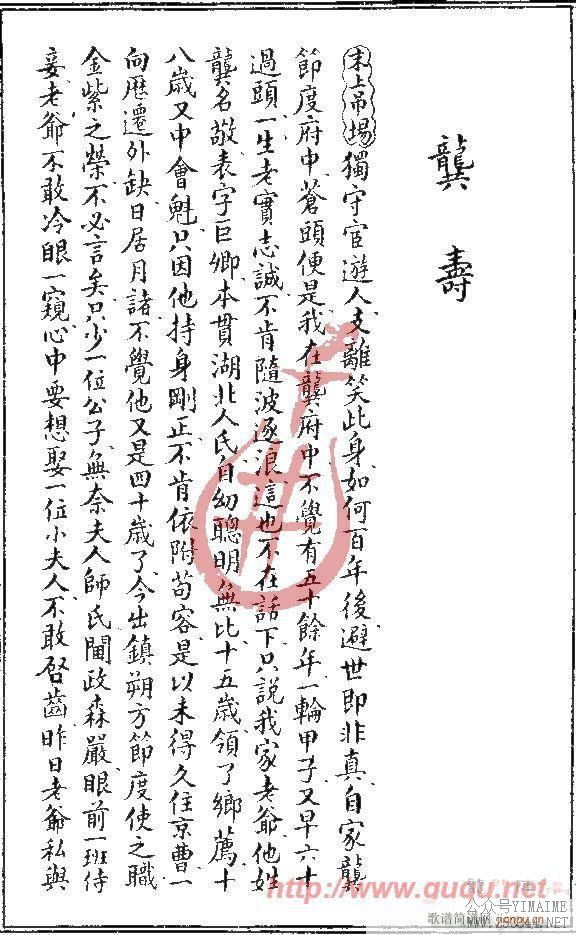 龔壽
末上吊場獨守宦遊人支離笑此身如何百年後避世即非真自家龔
節度府中蒼頭便是我在龔府中不覺有五十餘年一輪甲子又早六十
過頭一生老實志誠不肯隨波逐浪這也不在話下只說我家老爺他姓
龔名敬表字巨卿本貫湖北人氏自幼聰明無比十五歲領了鄉薦十
八歲又中會魁只因他持身剛正不肯依附苟容是以未得久住京曹一
向歷遷外缺日居月諸不覺他又是四十歲了今出鎮朔方節度使之職
金紫之榮不必言矣只少一位公子無奈夫人師氏閫政森嚴眼前一班侍
妾老爺不敢冷眼一窺心中要想娶一位小夫人不敢啟齒昨日老爺私與
http://www.guqu.net
公众号YIMAIME
歌谱简谱网